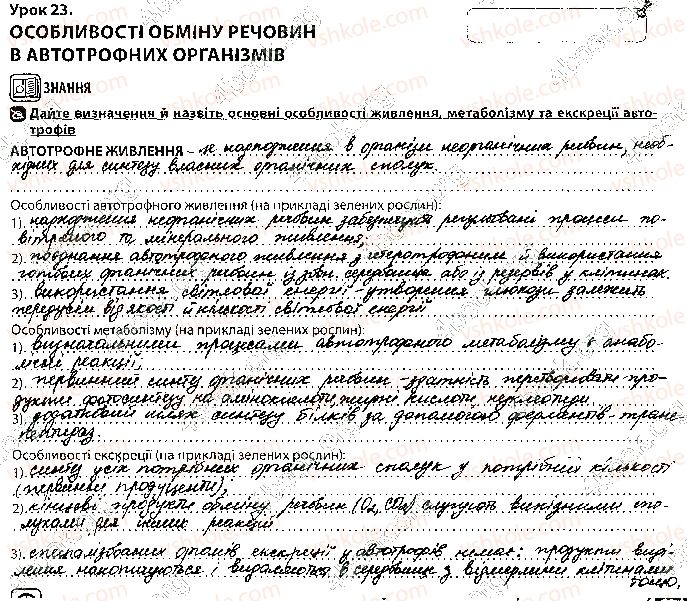 Урок 23.
ОСОБЛИВОСТІ ОБМІНУ РЕЧОВИН
В АВТОТРОФНИХ ОРГАНІЗМІВ
ЗНАННЯ
Дайте визначення й назвіть основні особливості живлення, метаболізму та екскреції авто-
трофів
АВТОТРОФНЕ ЖИВЛЕННЯ – це надходження в організм неорганічних речовин, необ-
хідних для синтезу власних органічних сполук.
Особливості автотрофного живлення (на прикладі зелених рослин):
1) надходження неорганічних речовин забезпечують регульовані процеси по-
вітряного та мінерального живлення;
2) поєднання автотрофного живлення з гетеротрофним й використання
готових органічних речовин із зовн. середовища або із резервів у клітинах.
3) використання світлової енергії - утворення глюкози залежить
передусім від якості й кількості світлової енергії
Особливості метаболізму (на прикладі зелених рослин):
1) визначальними процесами автотрофного метаболізму є анабо-
лічні реакції;
2) первинний синтез органічних речовин - здатність перетворювати про-
дукти фотосинтезу на амінокислоти, жирні кислоти, нуклеотиди
3) додатковий шлях синтезу білків за допомогою ферментів-транс-
Особливості екскреції (на прикладі зелених рослин):
1) синтез усіх потрібних органічних сполук у потрібній кількості
(первинні продуценти),
2) кінцеві продукти обміну речовин (O₂, CO₂) слугують вихідними спо-
луками для інших реакцій.
3) спеціалізованих органів екскреції у автотрофів немає: продукти виді-
лення накопичуються і видаляються в середовище з відмерлими клітинами
тощо.